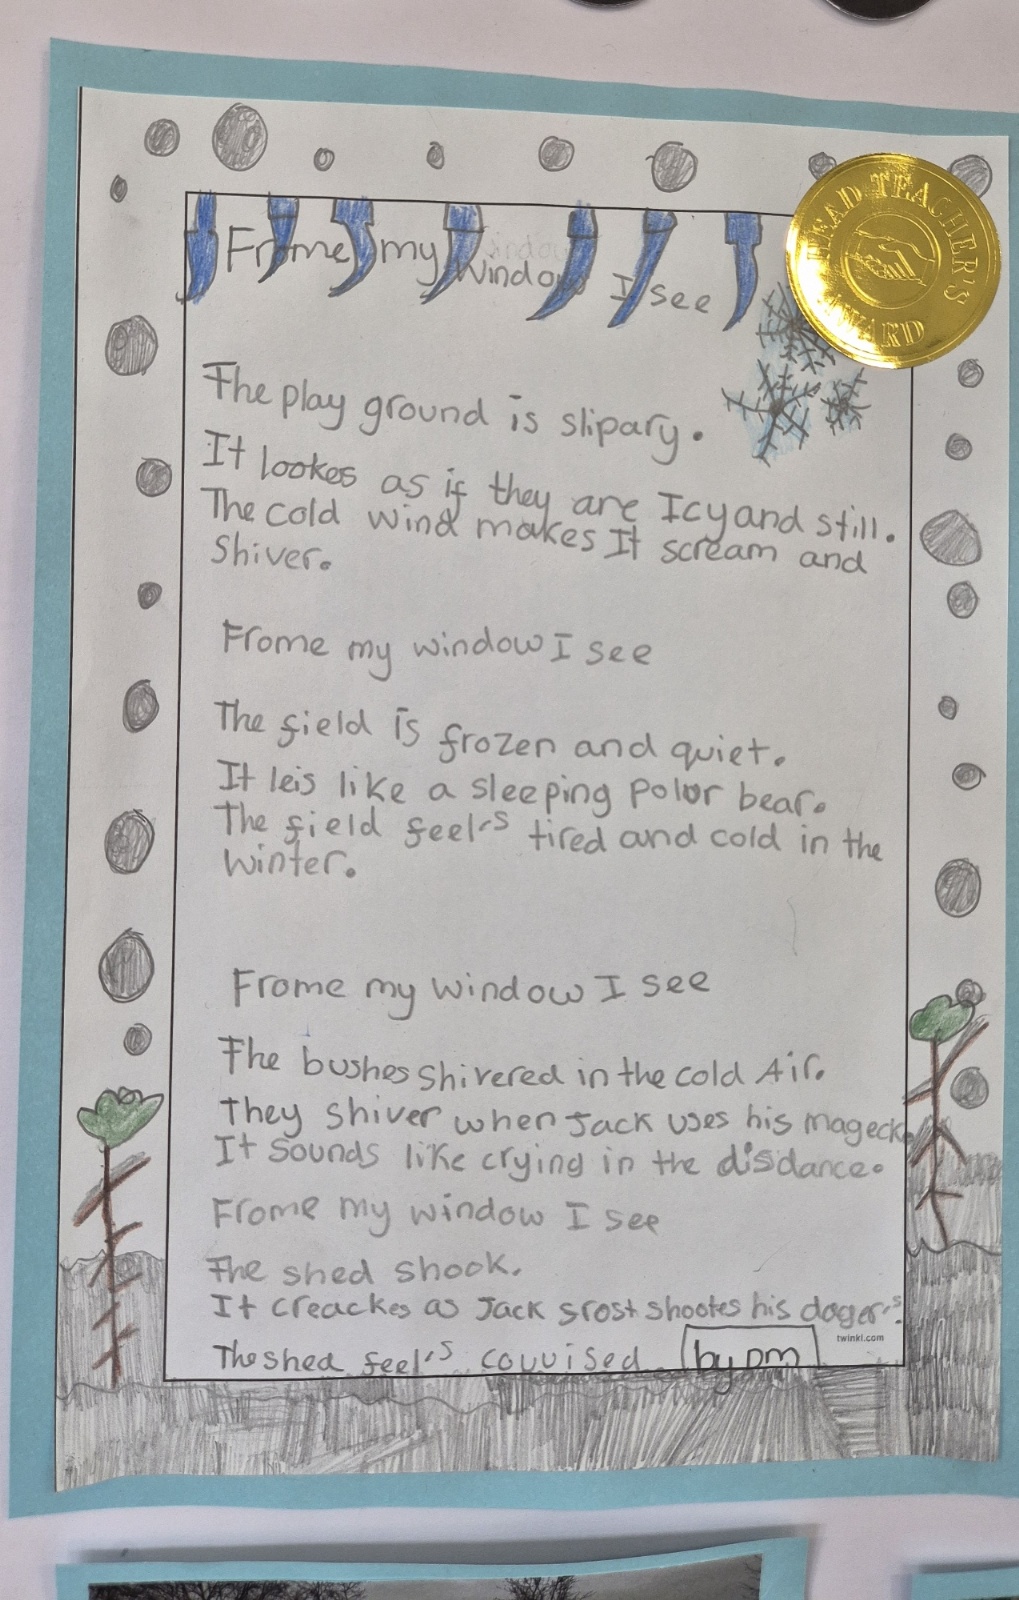 Frome my window I see
HEAD TEACHER'S AWARD
The play ground is slipary.
It lookes as if they are Icy and still.
The cold wind makes It scream and
shiver.
Frome my window I see
The field is frozen and quiet.
It leis like a sleeping Polor bear.
The field feel's tired and cold in the
winter.
Frome my window I see
The bushes shivered in the cold Air.
They shiver when Jack uses his mageck
It sounds like crying in the disdance.
Frome my window I see
The shed shook.
It creackes as Jack srost shootes his dager's.
twinkl.com
The shed feel's couuised. by DM